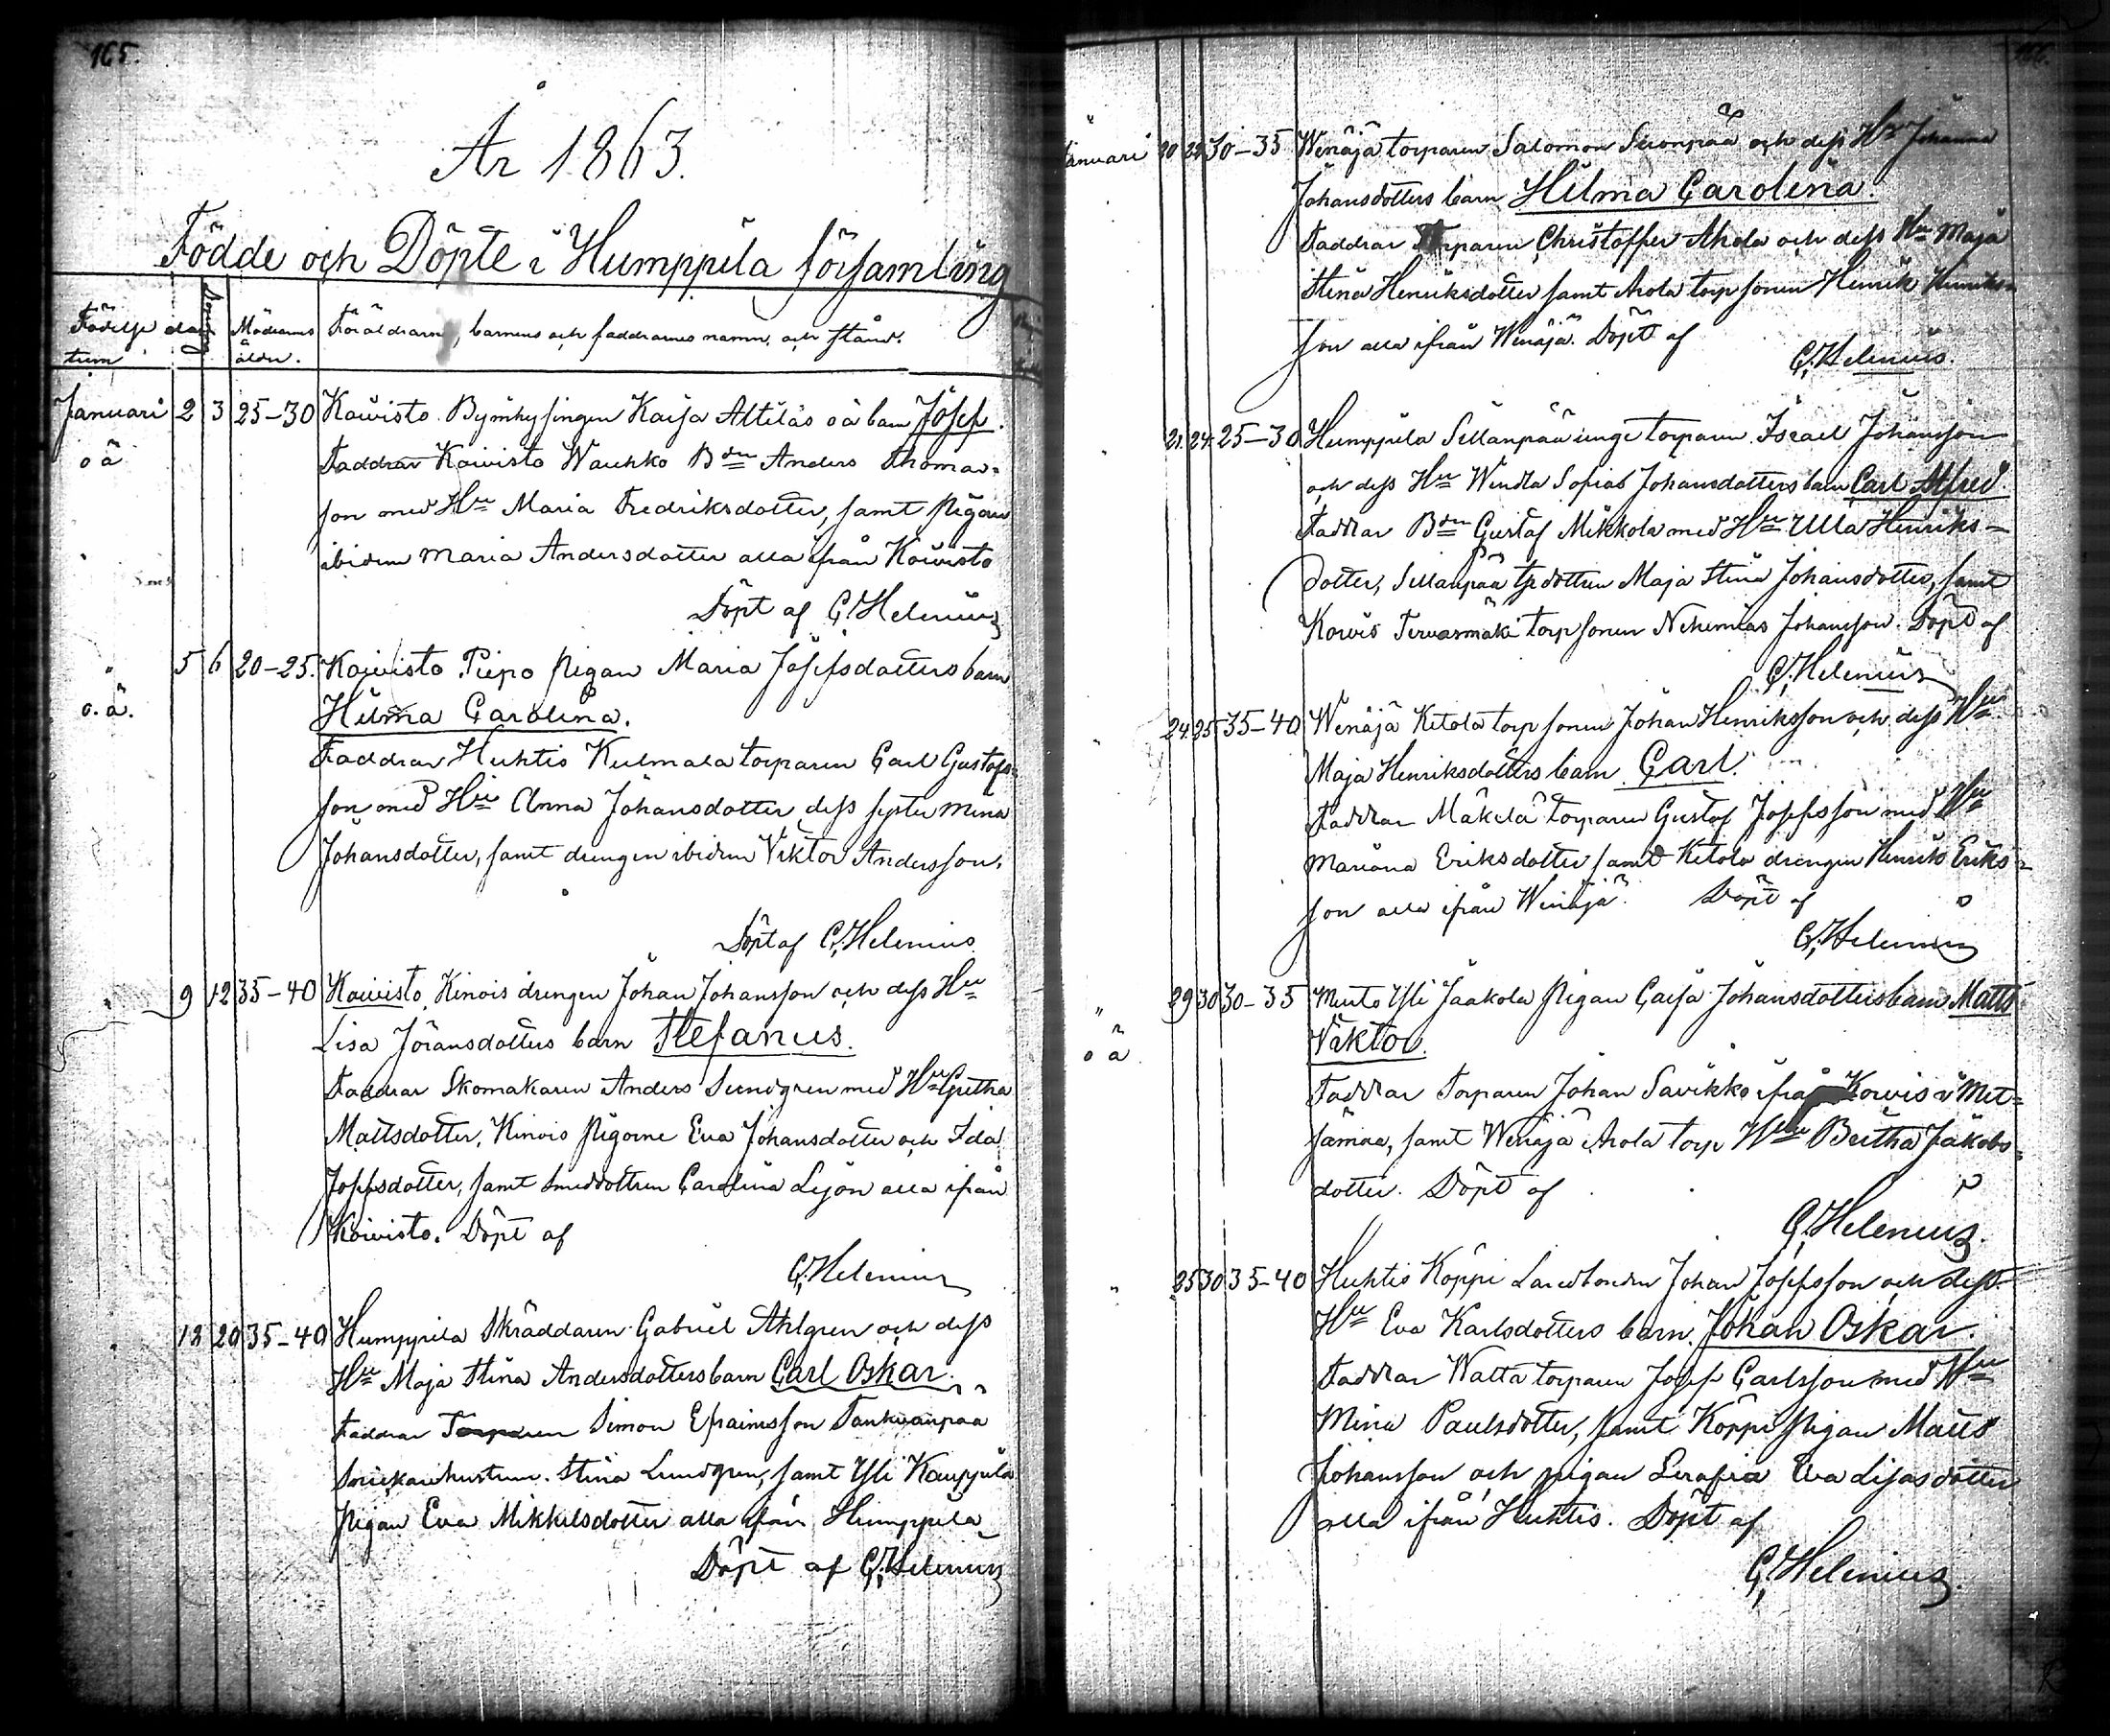 165.
År 1863.
Födde och Döpte i Humppila församling
Födelse da= Döpning Mödrarnes Föräldrarnes, barnens och faddrarnes namn och stånd.
tum ålder.
Januari 2 3 25-30 Koivisto Bymhysingen Kaisa Attilas oä barn Josef.
o ä Faddrar Koivisto Wauhko Bden Anders Thomas=
son med Hu Maria Fredriksdotter, samt pigan
ibidem Maria Andersdotter alla ifrån Koivisto
Döpt af G. Helenius
" 5 6 20-25. Koivisto Piepo pigan Maria Josefsdotters barn
o. ä. Hilma Carolina.
Faddrar Huhtis Kulmala torparen Carl Gustafs=
son med Hu Anna Johansdotter dess syster Mina
Johansdotter, samt drengen ibidem Viktor Andersson.
Döpt af G. Helenius
" 9 12 35-40 Koivisto Kinois drengen Johan Johansson och dess Hu
Lisa Göransdotters barn Stefanus.
Faddrar Skomakaren Anders Sundgren med Hu Gretha
Mattsdotter, Kinois pigorne Eva Johansdotter och Ida
Josefsdotter, samt smeddottren Carolina Lejon alla ifrån
Koivisto. Döpt af
G. Helenius
18 20 35-40 Humppila Skräddaren Gabriel Ahlgren och dess
Hu Maja Stina Andersdotters barn Carl Oskar.
Faddrar Torparen Simon Efraimsson Tankuanpää
Snickarhustrun Stina Lundgren, samt Yli Kauppila
pigan Eva Mikkelsdotter alla ifrån Humppila
Döpt af G. Helenius
166.
Januari 20 22 30-35 Wenäjä torparen Salomon Suonpää och dess Hu Johanna
Johansdotters barn Hilma Carolina.
Faddrar Torparen Christoffer Ahola och dess Hu Maja
Stina Henriksdotter samt Arola torpsonen Henrik Henriks=
son alla ifrån Wenäjä. Döpt af
G. Helenius.
" 21 24 25-30 Humppila Sillanpää unge torparen Israel Johansson
och dess Hu Wendla Sofias Johansdotters barn Carl Alfred.
Faddrar Bden Gustaf Mikkola med Hu Ulla Henriks=
dotter, Sillanpää tpdottren Maja Stina Johansdotter, samt
Korvis Tervasmäki torpsonen Nehemias Johansson. Döpt af
G. Helenius
" 24 25 35-40 Wenäjä Ketola torpsonen Johan Henriksson och dess Hu
Maja Henriksdotters barn Carl.
Faddrar Mäkelä torparen Gustaf Josefsson med Hu
Mariana Eriksdotter samt Ketola drengen Henrik Eriks=
son alla ifrån Wenäjä. Döpt af
G. Helenius
" 29 30 30-35 Murto Yli Jaakola pigan Caisa Johansdotters barn Matts
o ä Viktor.
Faddrar Torparen Johan Savikko ifrån Korvis i Met=
sämaa, samt Wenäjä Arola torp Hu Bertha Jakobs=
dotter. Döpt af
G. Helenius.
" 25 30 35-40 Huhtis Köppi Landbonden Johan Josefsson och dess
Hu Eva Karlsdotters barn Johan Oskar.
Faddrar Watta torparen Josef Carlsson med Hu
Mina Paulsdotter, samt Köppi Matts
Johansson och pigan Serafia Eva Lisasdotter
alla ifrån Huhtis. Döpt af
G. Helenius.